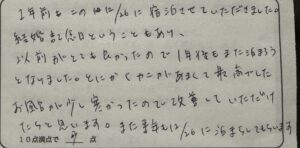 1年前もこの日に1/26に宿泊させていただきました。
結婚記念日ということもあり、
以前がとても良かったので1年後もまた泊まろう
となりました。とにかくカニがおいしくて最高でした
お風呂が少し寒かったので改善していただけ
たらと思います。また来年も1/26に泊まらしてもらいます
10点満点で 9 点